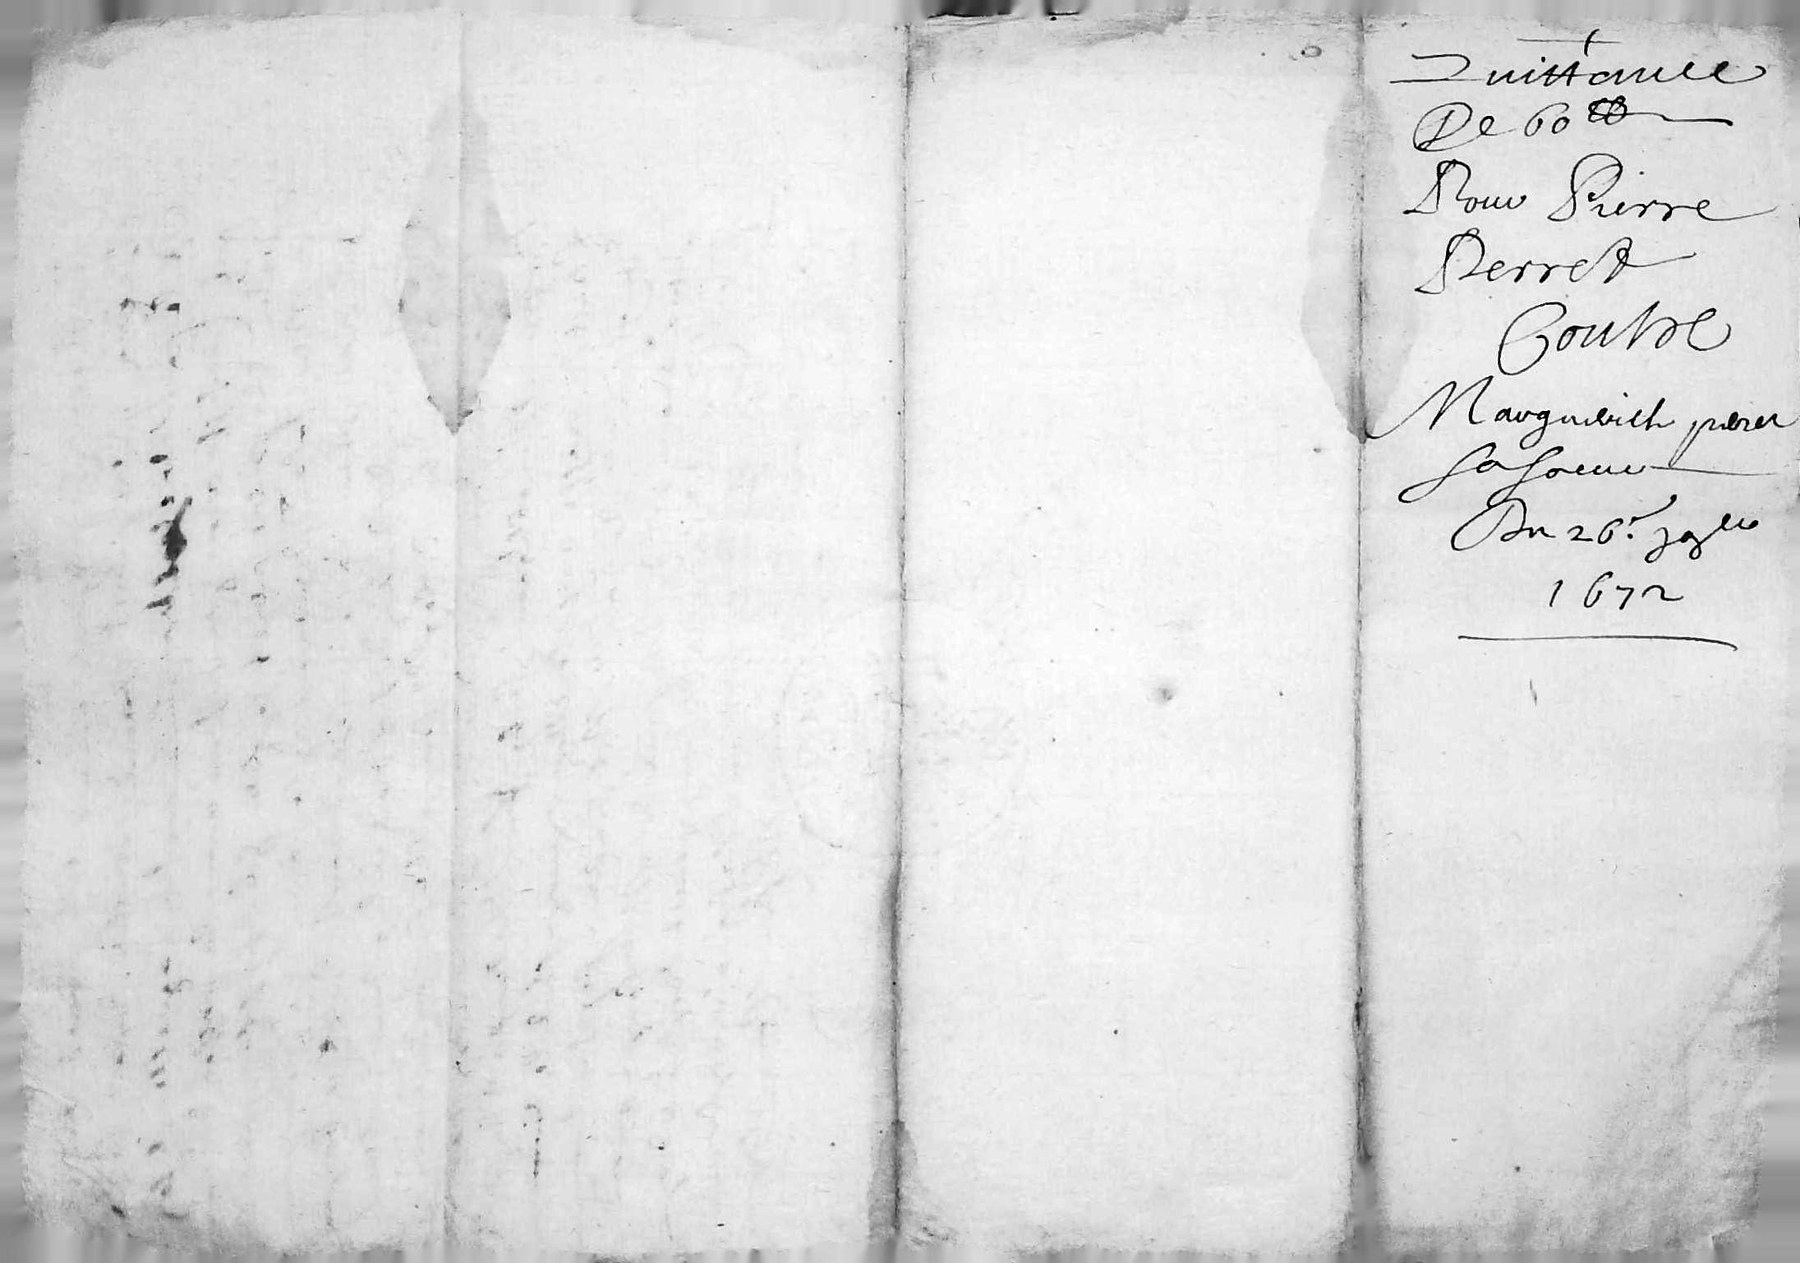 Quittance
De 60 ₶
Pour Pierre
Perret
Contre
Marguerith
sa soeur
Du 26.e
1672